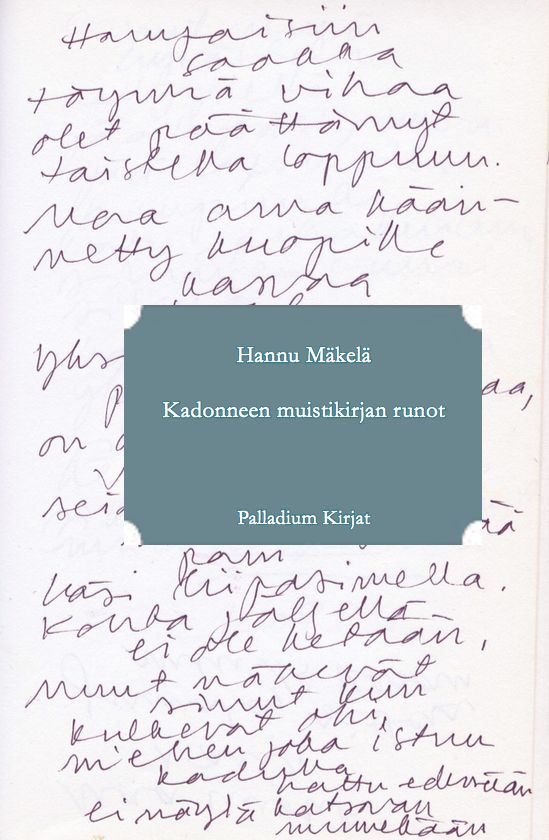 Hampaisiin
saakka
täynnä vihaa
olet päättänyt
taistella loppuun.
Maa aina kään-
netty kuopille
kasvaa
Hannu Mäkelä
Kadonneen muistikirjan runot
on
Palladium Kirjat
käsi liipasimella.
Kohta jäljellä
ei ole ketään,
muut näkevät
sinut kun
kulkevat ohi,
miehen joka istuu
kadulla
hattu edessään
ei näytä katsovan
minnekään